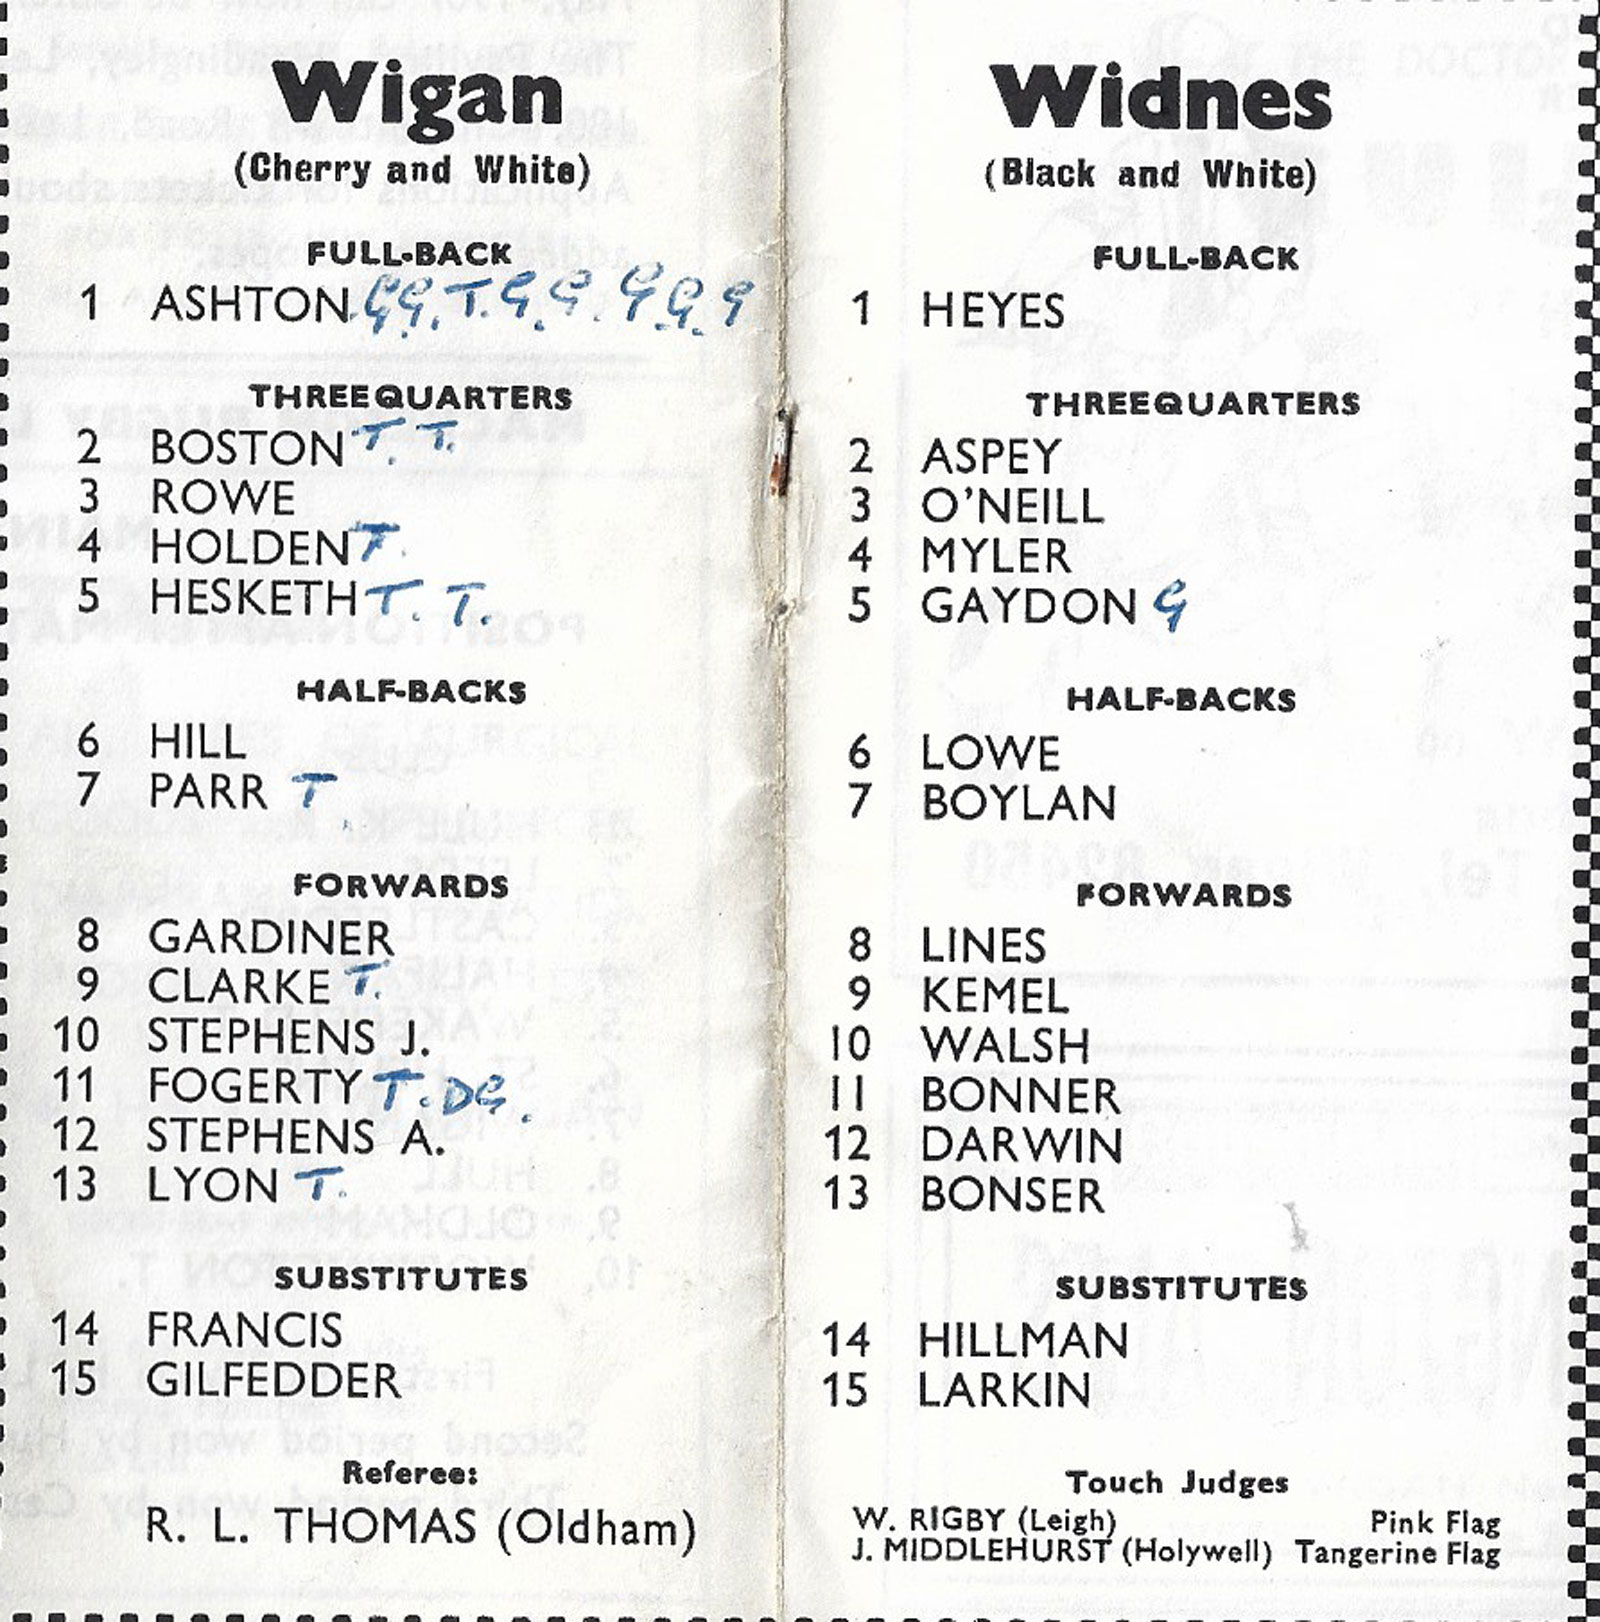 Wigan
(Cherry and White)
FULL-BACK
1 ASHTON G G. T. G. G. G G. G
THREEQUARTERS
2 BOSTON T. T.
3 ROWE
4 HOLDEN T.
5 HESKETH T. T.
HALF-BACKS
6 HILL
7 PARR T
FORWARDS
8 GARDINER
9 CLARKE T.
10 STEPHENS J.
11 FOGERTY T. DG.
12 STEPHENS A.
13 LYON T.
SUBSTITUTES
14 FRANCIS
15 GILFEDDER
Referee:
R. L. THOMAS (Oldham)
Widnes
(Black and White)
FULL-BACK
1 HEYES
THREEQUARTERS
2 ASPEY
3 O'NEILL
4 MYLER
5 GAYDON G
HALF-BACKS
6 LOWE
7 BOYLAN
FORWARDS
8 LINES
9 KEMEL
10 WALSH
11 BONNER
12 DARWIN
13 BONSER
SUBSTITUTES
14 HILLMAN
15 LARKIN
Touch Judges
W. RIGBY (Leigh) Pink Flag
J. MIDDLEHURST (Holywell) Tangerine Flag